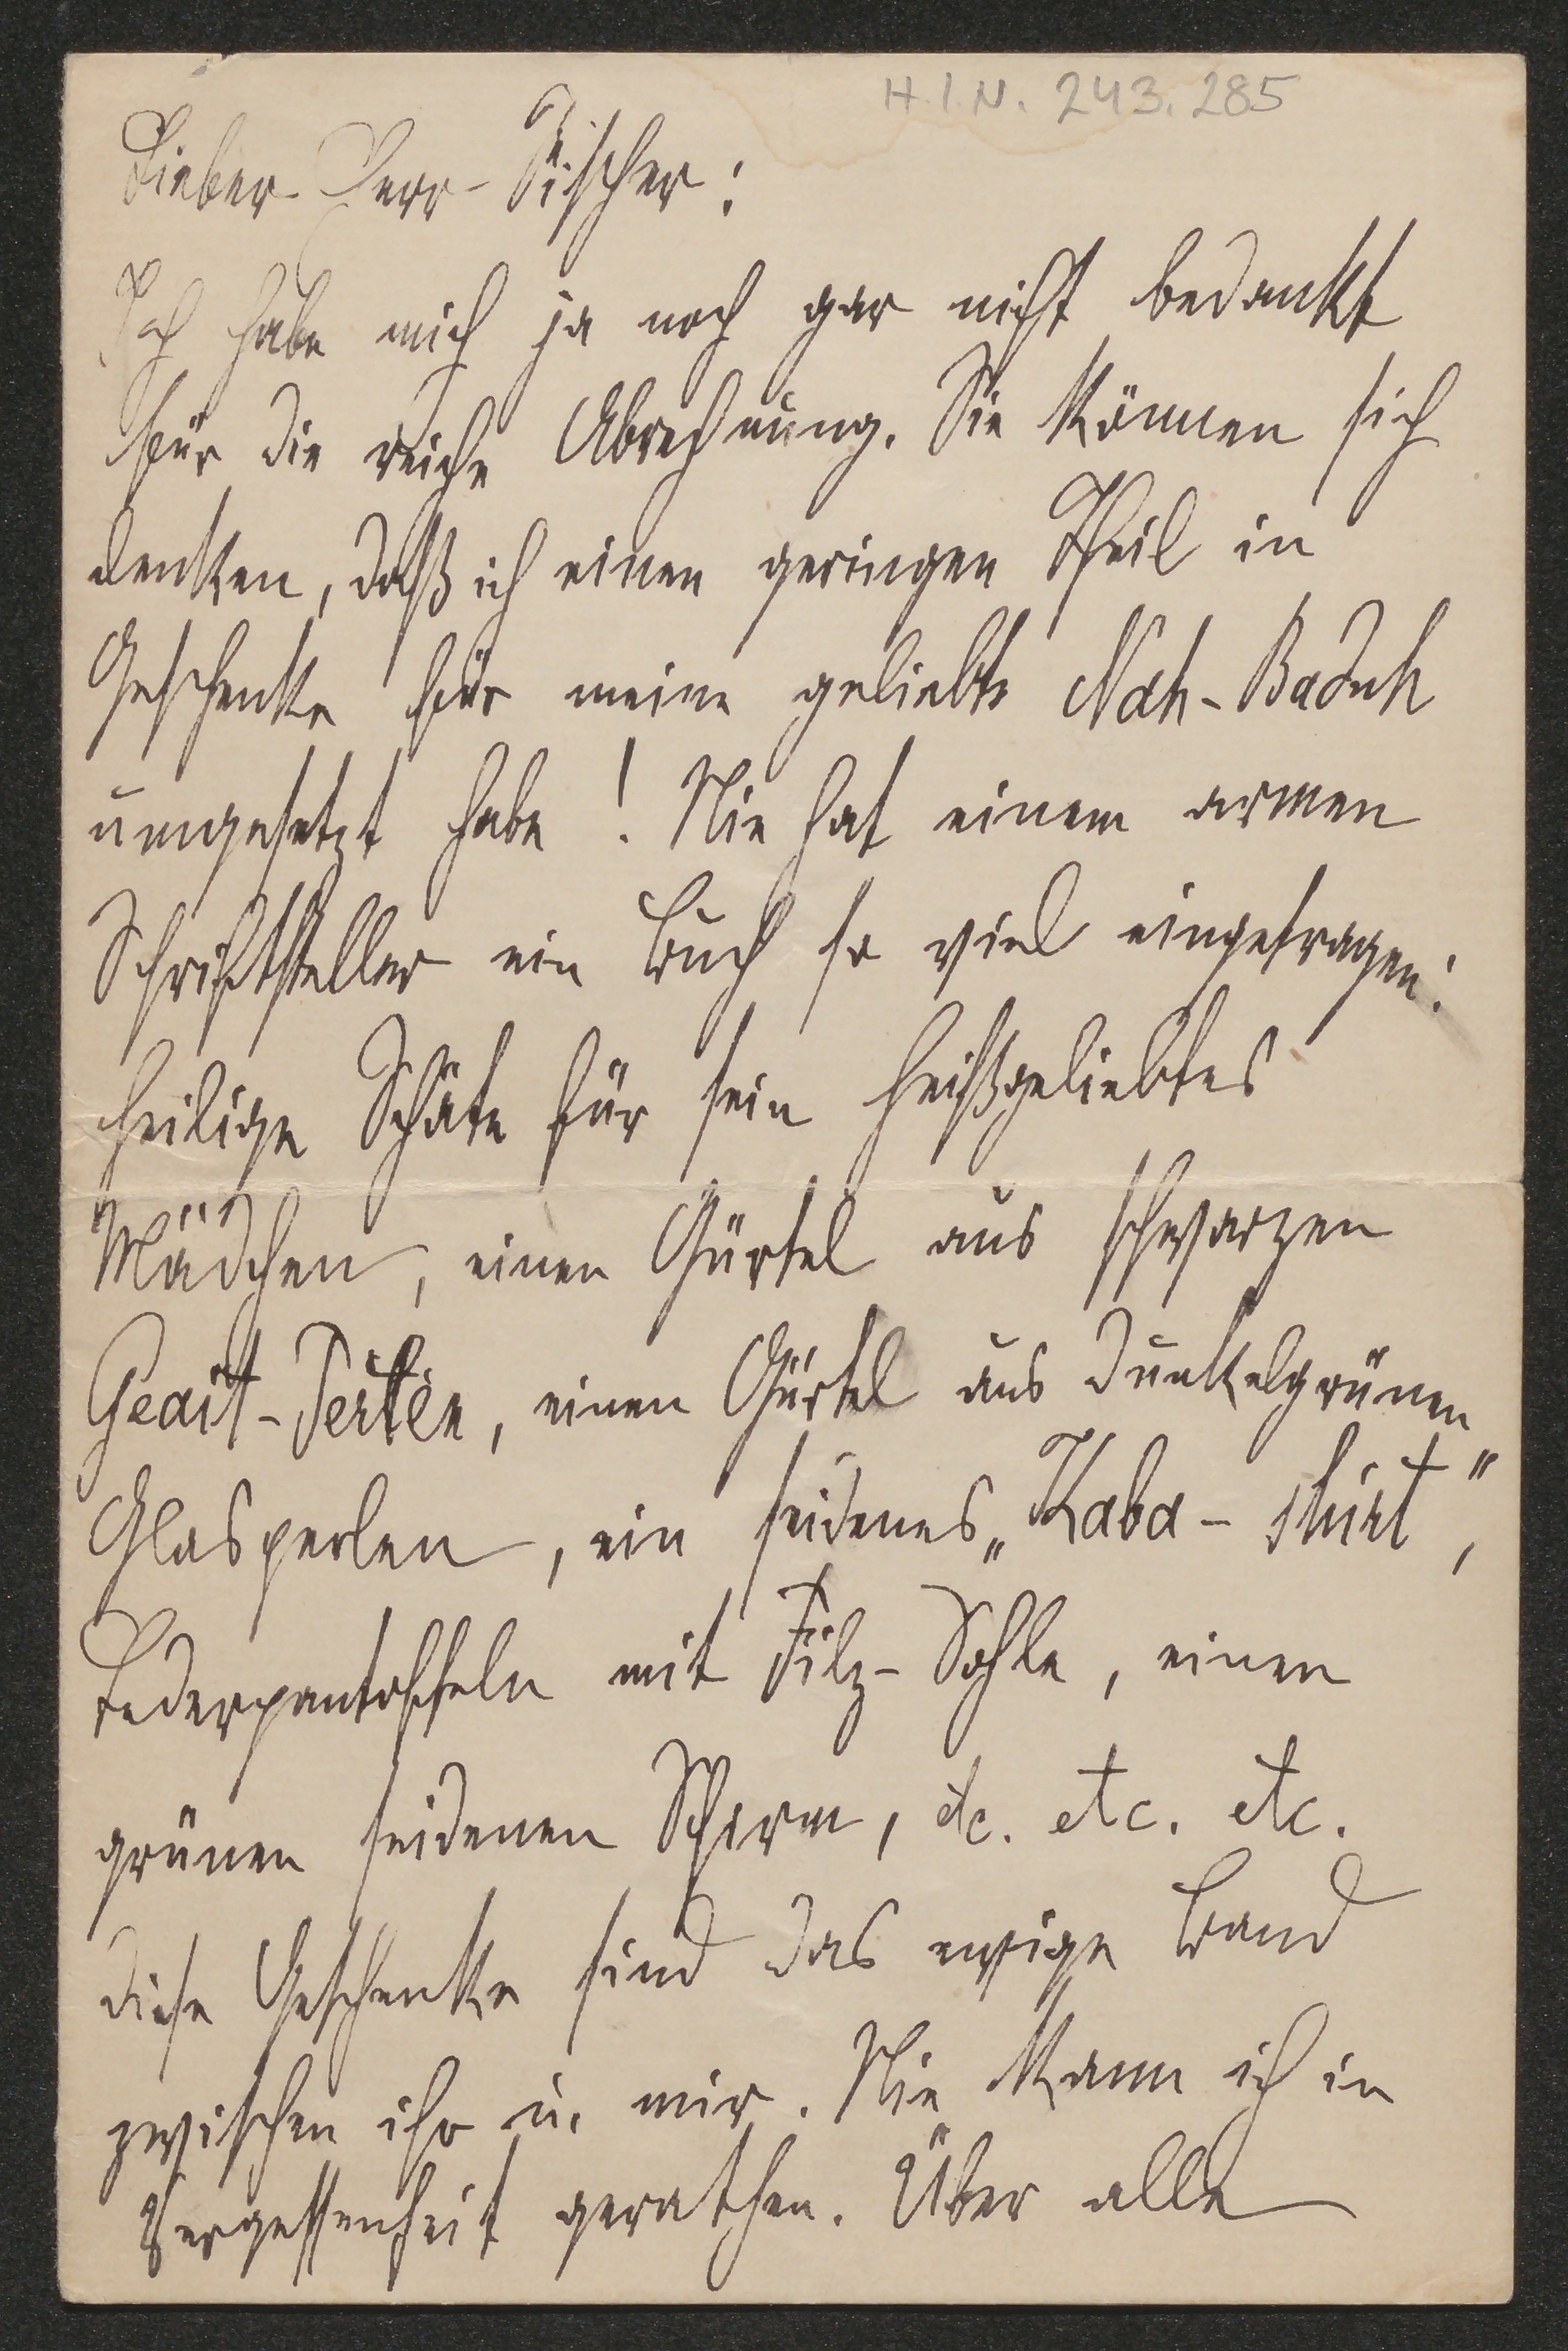 H.I.N. 243.285
Lieber Herr Fischer:
Ich habe mich ja noch gar nicht bedankt
für die reiche Abrechnung. Sie können sich
denken, daß ich einen geringen Theil in
Geschenke für meine geliebte Nah-Baduh
umgesetzt habe! Nie hat einem armen
Schriftsteller ein Buch so viel eingetragen:
heilige Schäte für sein heißgeliebtes
Mädchen, einen Gürtel aus schwarzen
Geait-Perlen, einen Gürtel aus dunkelgrünen
Glasperlen, ein seidenes „Kaba-shirt",
Lederpantoffeln mit Filz-Sohle, einen
grünen seidenen Schirm, etc. etc. etc.
diese Geschenke sind das ewige Band
zwischen ihr u. mir. Nie kann ich in
Vergessenheit gerathen. Über alle